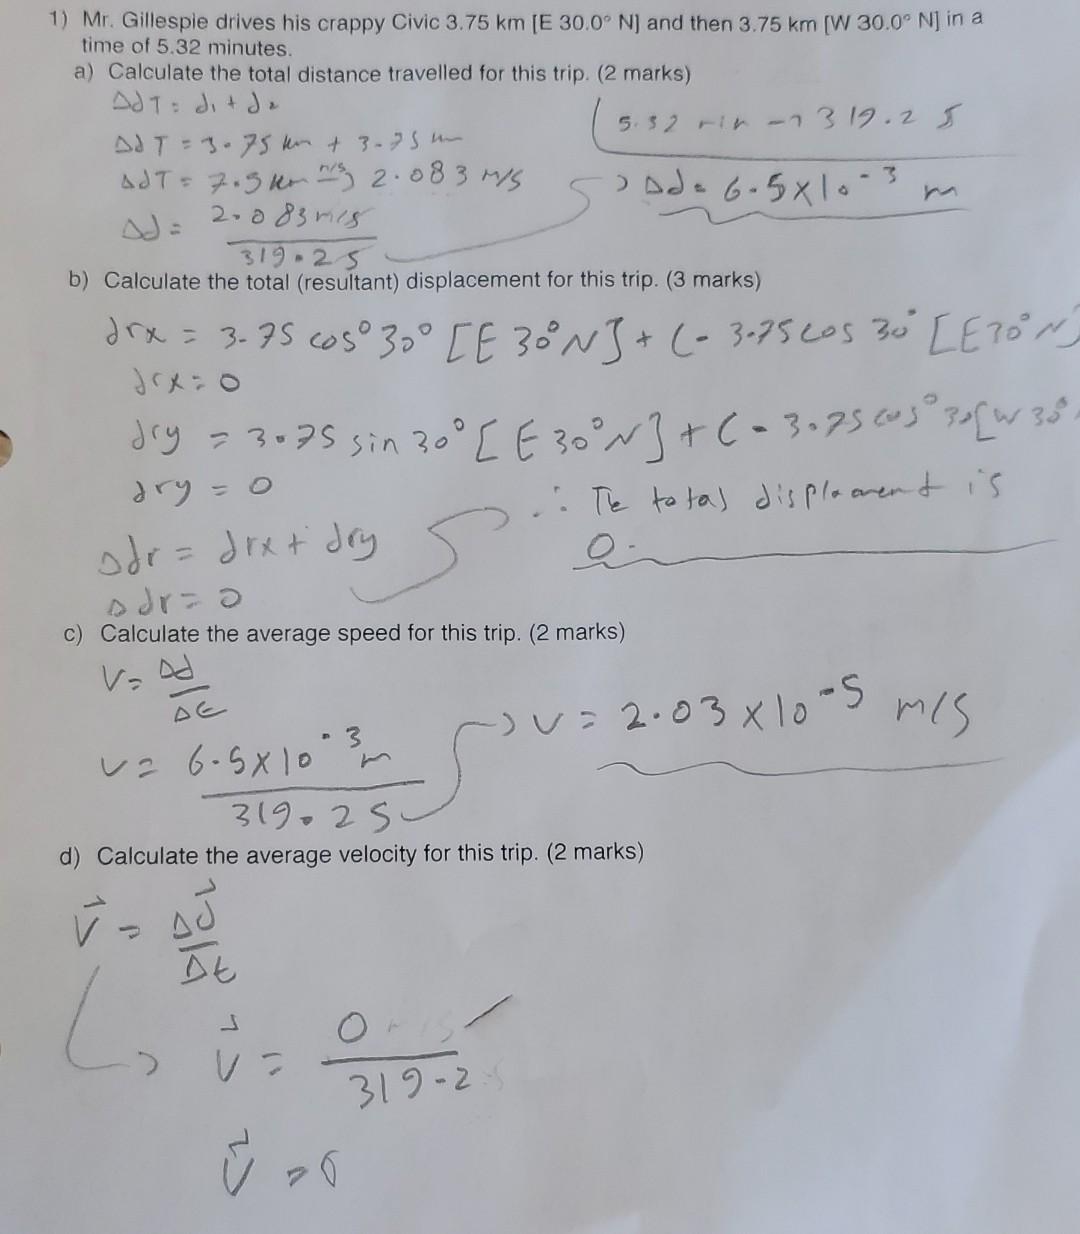 1) Mr. Gillespie drives his crappy Civic 3.75 km [E 30.0° N] and then 3.75 km [W 30.0° N] in a
time of 5.32 minutes.
a) Calculate the total distance travelled for this trip. (2 marks)
ΔdT = d1 + d2
ΔdT = 3.75 km + 3.75 km
ΔdT = 7.5 km m/s → 2.083 m/s
Δd = 2.083 m/s / 319.2 s
5.32 min → 319.2 s
→ Δd = 6.5 x 10^-3 m
b) Calculate the total (resultant) displacement for this trip. (3 marks)
drx = 3.75 cos° 30° [E 30° N] + (- 3.75 cos 30° [E 30° N]
drx = 0
dry = 3.75 sin 30° [E 30° N] + (- 3.75 cos° 30 [W 30°
dry = 0
Δdr = drx + dry
Δdr = 0
∴ The total displacement is
0.
c) Calculate the average speed for this trip. (2 marks)
V = Δd / Δt
V = 6.5 x 10^-3 m / 319.2 s
→ V = 2.03 x 10^-5 m/s
d) Calculate the average velocity for this trip. (2 marks)
V⃗ = Δd⃗ / Δt
→ V⃗ = 0 / 319.2
V⃗ = 0